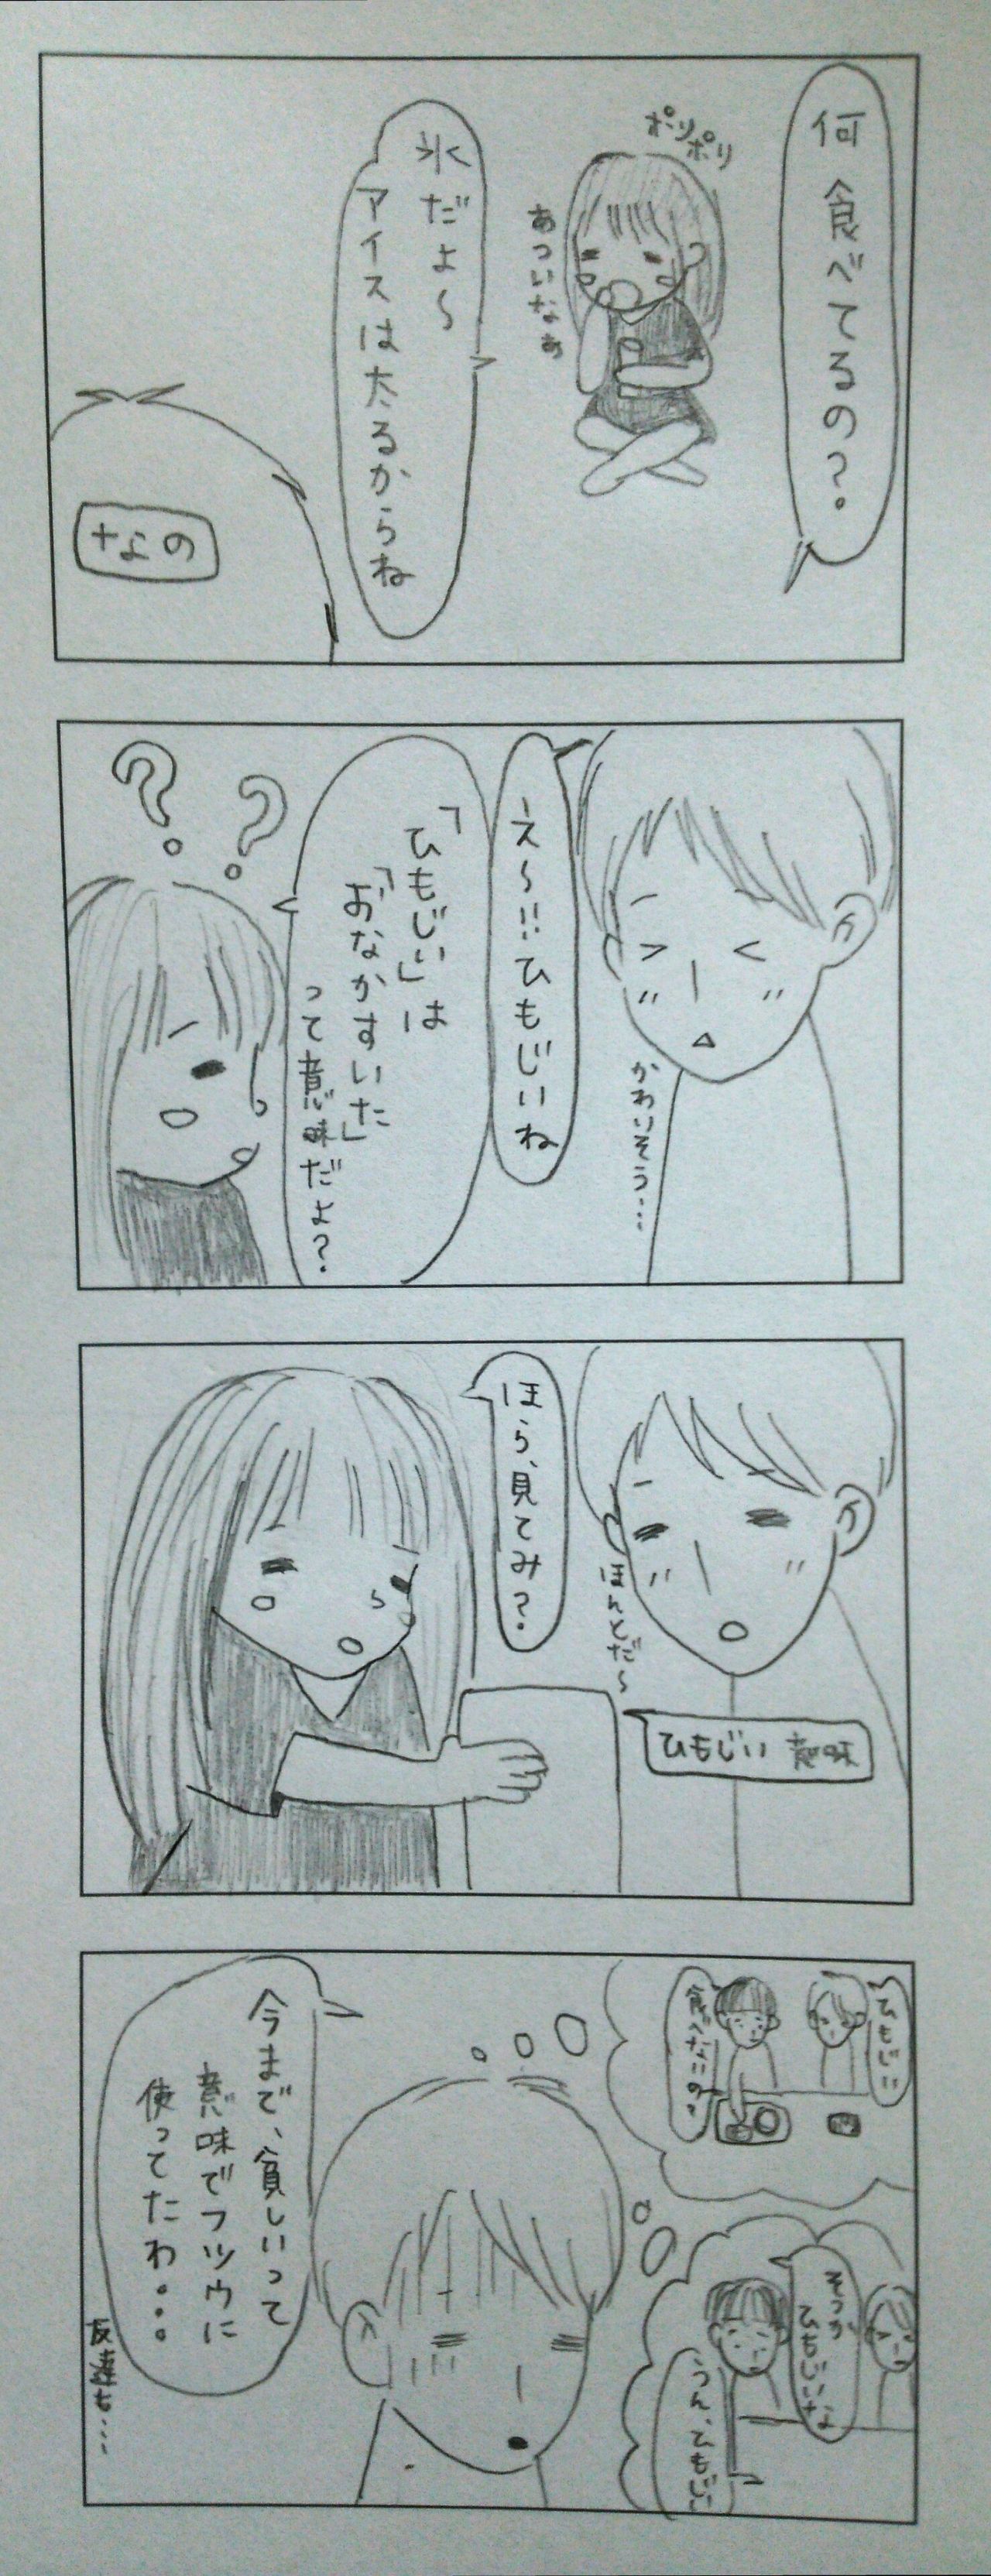 何食べてるの?
ポリポリ
あついなぁ
氷だよ〜
アイスは太るからね
なの
え〜!!ひもじいね
かわいそう…
「ひもじい」は
「おなかすいた」
って意味だよ?
ほら、見てみ?
ほんとだ〜
ひもじい 意味
ひもじい
食べないの?
そっか
ひもじいなぁ
うん、ひもじい
今まで、貧しいって
意味でフツウに
使ってたわ…
友達も…